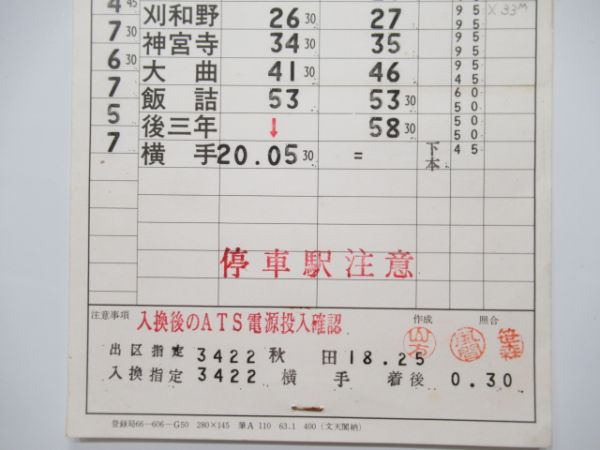 4 45
刈和野 26 30 27 9 5 ×33M
6 30 9 5
神宮寺 34 30 35 9 5
7 30 9 5
大曲 41 30 46 4 5
7 6 0
飯詰 53 53 30 5 0
5 5 0
後三年 ↓ 58 30 5 0
7 4 5
横手 20.05 30 = 下本
停車駅注意
注意事項 入換後のATS電源投入確認 作成 照合
出区指定 3422 秋田 18.25
入換指定 3422 横手着後 0.30
登録局66―606―G50 280×145 筆A 110 63.1 400 (文天閣納)